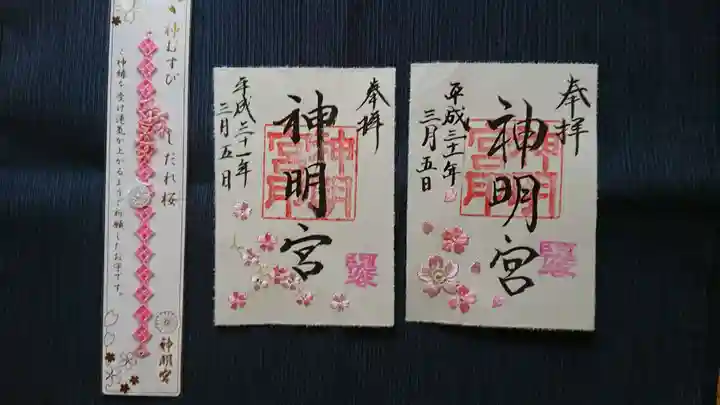 神むすび
しだれ桜
ご神縁を受け運気が上がるようご祈願したお守です。
神明宮
奉拝
神明宮
平成三十一年
三月五日
神明宮印
奉拝
神明宮
平成三十一年
三月五日
神明宮印